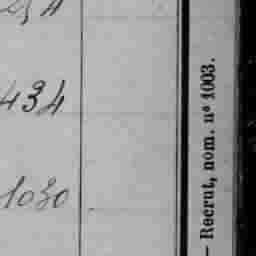 434
1030
— Recrut, nom. n° 1003.